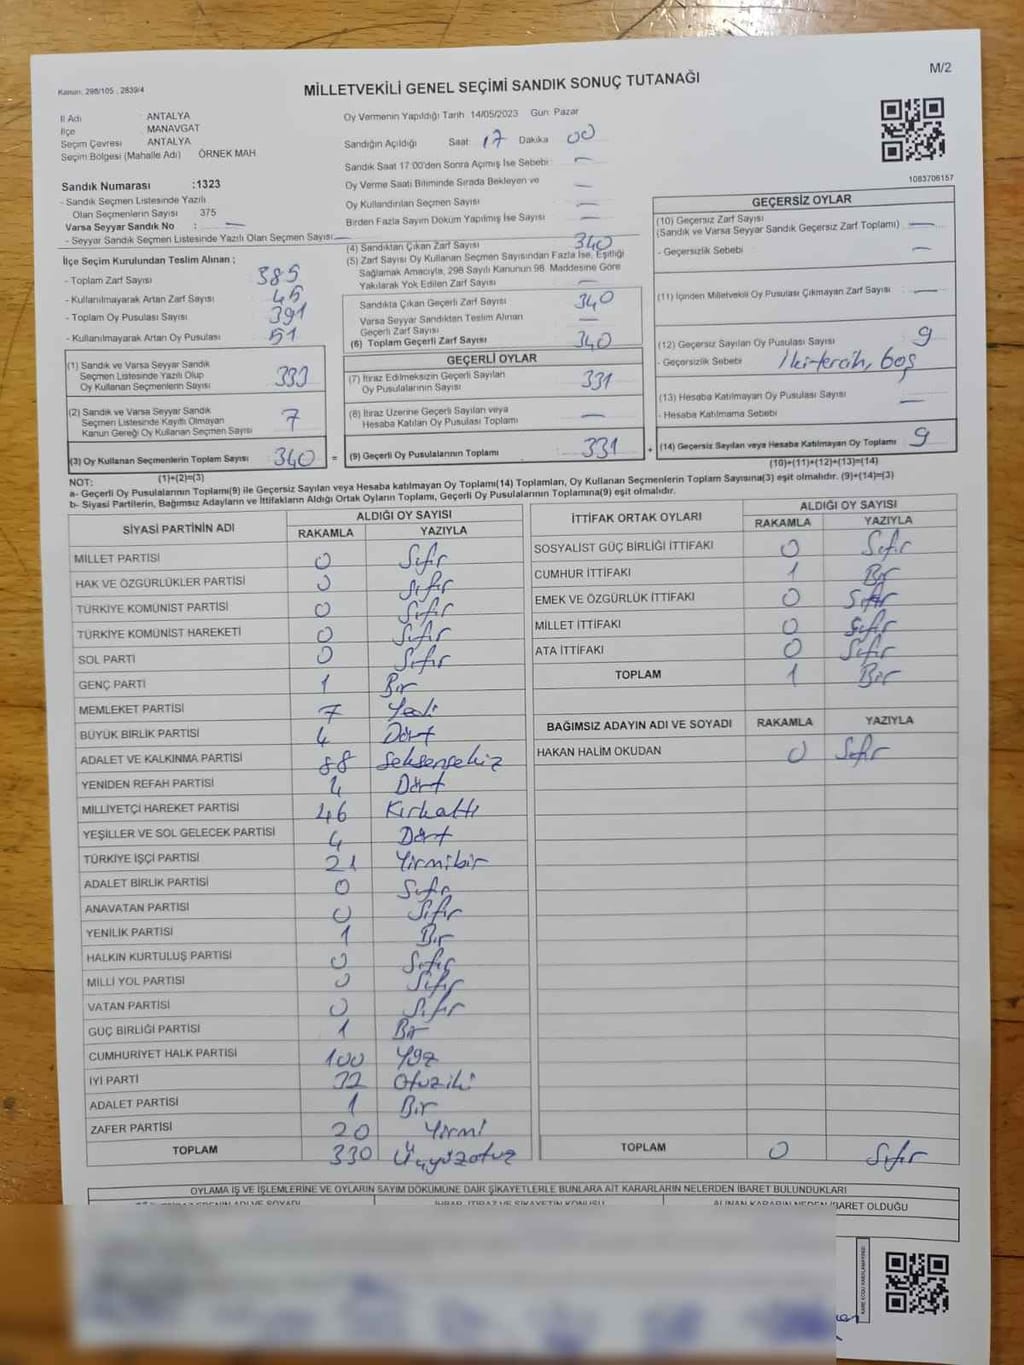 Kanun: 298/105 , 2839/4
MİLLETVEKİLİ GENEL SEÇİMİ SANDIK SONUÇ TUTANAĞI
M/2
İl Adı : ANTALYA
İlçe : MANAVGAT
Seçim Çevresi : ANTALYA
Seçim Bölgesi (Mahalle Adı) : ÖRNEK MAH
Oy Vermenin Yapıldığı Tarih 14/05/2023 Gün: Pazar
Sandığın Açıldığı Saat 17 Dakika 00
Sandık Saat 17:00'den Sonra Açımış İse Sebebi : —
Oy Verme Saati Bitiminde Sırada Bekleyen ve —
Oy Kullandırılan Seçmen Sayısı : —
Birden Fazla Sayım Döküm Yapılmış İse Sayısı : —
1083706157
Sandık Numarası :1323
- Sandık Seçmen Listesinde Yazılı
Olan Seçmenlerin Sayısı : 375
Varsa Seyyar Sandık No : —
- Seyyar Sandık Seçmen Listesinde Yazılı Olan Seçmen Sayısı: —
İlçe Seçim Kurulundan Teslim Alınan ;
- Toplam Zarf Sayısı : 385
- Kullanılmayarak Artan Zarf Sayısı : 45
- Toplam Oy Pusulası Sayısı : 391
- Kullanılmayarak Artan Oy Pusulası : 51
(1) Sandık ve Varsa Seyyar Sandık
Seçmen Listesinde Yazılı Olup
Oy Kullanan Seçmenlerin Sayısı : 333
(2) Sandık ve Varsa Seyyar Sandık
Seçmen Listesinde Kayıtlı Olmayan
Kanun Gereği Oy Kullanan Seçmen Sayısı : 7
(3) Oy Kullanan Seçmenlerin Toplam Sayısı : 340
(1)+(2)=(3)
(4) Sandıktan Çıkan Zarf Sayısı : 340
(5) Zarf Sayısı Oy Kullanan Seçmen Sayısından Fazla İse, Eşitliği
Sağlamak Amacıyla, 298 Sayılı Kanunun 98. Maddesine Göre
Yakılarak Yok Edilen Zarf Sayısı : —
Sandıkta Çıkan Geçerli Zarf Sayısı : 340
Varsa Seyyar Sandıktan Teslim Alınan
Geçerli Zarf Sayısı : —
(6) Toplam Geçerli Zarf Sayısı : 340
GEÇERLİ OYLAR
(7) İtiraz Edilmeksizin Geçerli Sayılan
Oy Pusulalarının Sayısı : 331
(8) İtiraz Üzerine Geçerli Sayılan veya
Hesaba Katılan Oy Pusulası Toplamı : —
= (9) Geçerli Oy Pusulalarının Toplamı : 331 +
GEÇERSİZ OYLAR
(10) Geçersiz Zarf Sayısı
(Sandık ve Varsa Seyyar Sandık Geçersiz Zarf Toplamı) : —
- Geçersizlik Sebebi : —
(11) İçinden Milletvekili Oy Pusulası Çıkmayan Zarf Sayısı : —
(12) Geçersiz Sayılan Oy Pusulası Sayısı : 9
- Geçersizlik Sebebi : İki tercih, boş
(13) Hesaba Katılmayan Oy Pusulası Sayısı : —
- Hesaba Katılmama Sebebi :
(14) Geçersiz Sayılan veya Hesaba Katılmayan Oy Toplamı : 9
(10)+(11)+(12)+(13)=(14)
NOT:
a- Geçerli Oy Pusulalarının Toplamı(9) ile Geçersiz Sayılan veya Hesaba katılmayan Oy Toplamı(14) Toplamları, Oy Kullanan Seçmenlerin Toplam Sayısına(3) eşit olmalıdır. (9)+(14)=(3)
b- Siyasi Partilerin, Bağımsız Adayların ve İttifakların Aldığı Ortak Oyların Toplamı, Geçerli Oy Pusulalarının Toplamına(9) eşit olmalıdır.
SİYASİ PARTİNİN ADI ALDIĞI OY SAYISI RAKAMLA YAZIYLA
MİLLET PARTİSİ 0 Sıfır
HAK VE ÖZGÜRLÜKLER PARTİSİ 0 Sıfır
TÜRKİYE KOMÜNİST PARTİSİ 0 Sıfır
TÜRKİYE KOMÜNİST HAREKETİ 0 Sıfır
SOL PARTİ 0 Sıfır
GENÇ PARTİ 1 Bir
MEMLEKET PARTİSİ 7 Yedi
BÜYÜK BİRLİK PARTİSİ 4 Dört
ADALET VE KALKINMA PARTİSİ 88 Seksensekiz
YENİDEN REFAH PARTİSİ 4 Dört
MİLLİYETÇİ HAREKET PARTİSİ 46 Kırkaltı
YEŞİLLER VE SOL GELECEK PARTİSİ 4 Dört
TÜRKİYE İŞÇİ PARTİSİ 21 Yirmibir
ADALET BİRLİK PARTİSİ 0 Sıfır
ANAVATAN PARTİSİ 0 Sıfır
YENİLİK PARTİSİ 1 Bir
HALKIN KURTULUŞ PARTİSİ 0 Sıfır
MİLLİ YOL PARTİSİ 0 Sıfır
VATAN PARTİSİ 0 Sıfır
GÜÇ BİRLİĞİ PARTİSİ 1 Bir
CUMHURİYET HALK PARTİSİ 100 Yüz
İYİ PARTİ 32 Otuziki
ADALET PARTİSİ 1 Bir
ZAFER PARTİSİ 20 Yirmi
TOPLAM 330 Üçyüzotuz
İTTİFAK ORTAK OYLARI ALDIĞI OY SAYISI RAKAMLA YAZIYLA
SOSYALİST GÜÇ BİRLİĞİ İTTİFAKI 0 Sıfır
CUMHUR İTTİFAKI 1 Bir
EMEK VE ÖZGÜRLÜK İTTİFAKI 0 Sıfır
MİLLET İTTİFAKI 0 Sıfır
ATA İTTİFAKI 0 Sıfır
TOPLAM 1 Bir
BAĞIMSIZ ADAYIN ADI VE SOYADI RAKAMLA YAZIYLA
HAKAN HALİM OKUDAN 0 Sıfır
TOPLAM 0 Sıfır
OYLAMA İŞ VE İŞLEMLERİNE VE OYLARIN SAYIM DÖKÜMÜNE DAİR ŞİKAYETLERLE BUNLARA AİT KARARLARIN NELERDEN İBARET BULUNDUKLARI